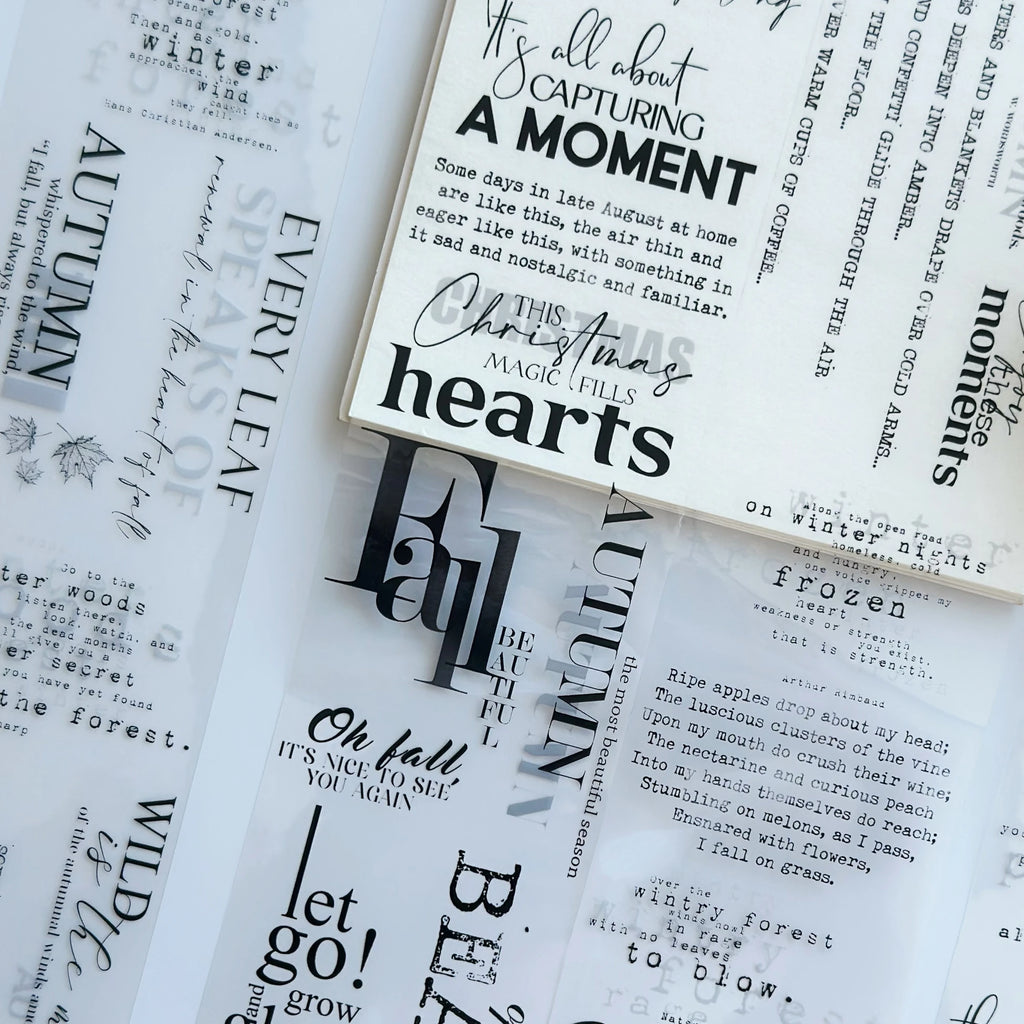 forest
orange and gold.
Then, as
winter
approached, the
wind
caught them as
they fell.
Hans Christian Andersen.
AUTUMN
"I fall, but always
whispered to the wind,
EVERY LEAF
SPEAKS OF
renewal in the heart of fall
Go to the
woods
listen there,
look, watch, and
the dead months
give you a
secret
you have yet found
the forest.
WILD
is the
of the autumnal winds
It's all about
CAPTURING
A MOMENT
Some days in late August at home
are like this, the air thin and
eager like this, with something in
it sad and nostalgic and familiar.
CHRISTMAS
THIS
Christmas
MAGIC FILLS
hearts
WARM CUPS OF COFFEE...
THE FLOOR...
CONFETTI GLIDE THROUGH THE AIR
DEEPEN INTO AMBER...
AND BLANKETS DRAPE OVER COLD ARMS...
W. WORDSWORTH
these
moments
Fall
BE
AU
TI
FU
L
AUTUMN
the most beautiful season
Oh fall,
IT'S NICE TO SEE
YOU AGAIN
let
go!
and
grow
BEA
Along the open road
on winter nights
homeless, cold
and hungry,
one voice gripped my
frozen
heart -
weakness or strength
you exist.
that is strength.
Arthur Rimbaud
Ripe apples drop about my head;
The luscious clusters of the vine
Upon my mouth do crush their wine;
The nectarine and curious peach
Into my hands themselves do reach;
Stumbling on melons, as I pass,
Ensnared with flowers,
I fall on grass.
Over the
wintry forest
winds howl
in rage
with no leaves
to blow.